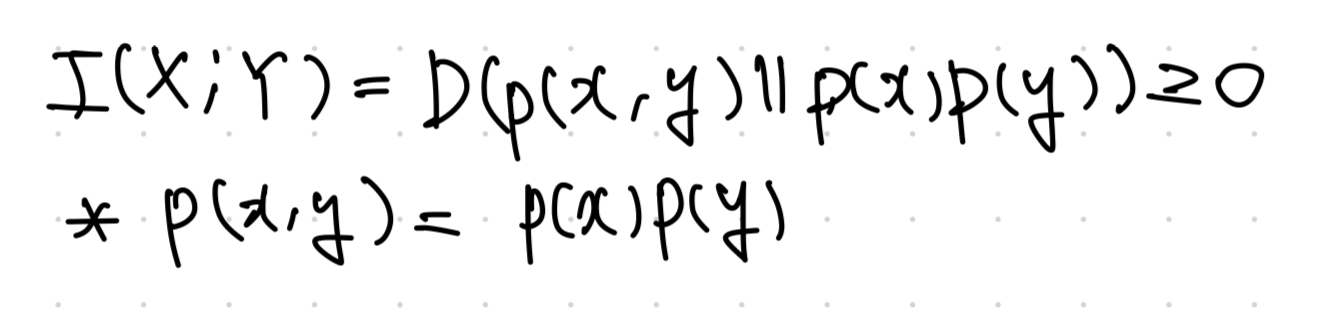 I(X;Y) = D(p(x,y)||p(x)p(y)) ≥ 0
* p(x,y) = p(x)p(y)